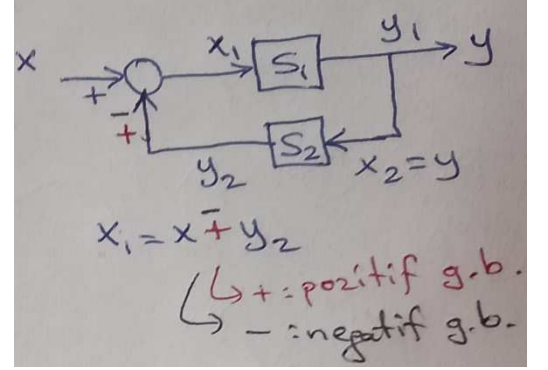 x x₁ S₁ y₁ y
+ − +
S₂
y₂ x₂=y
x₁ = x ∓ y₂
↳ + : pozitif g.b.
↳ − : negatif g.b.